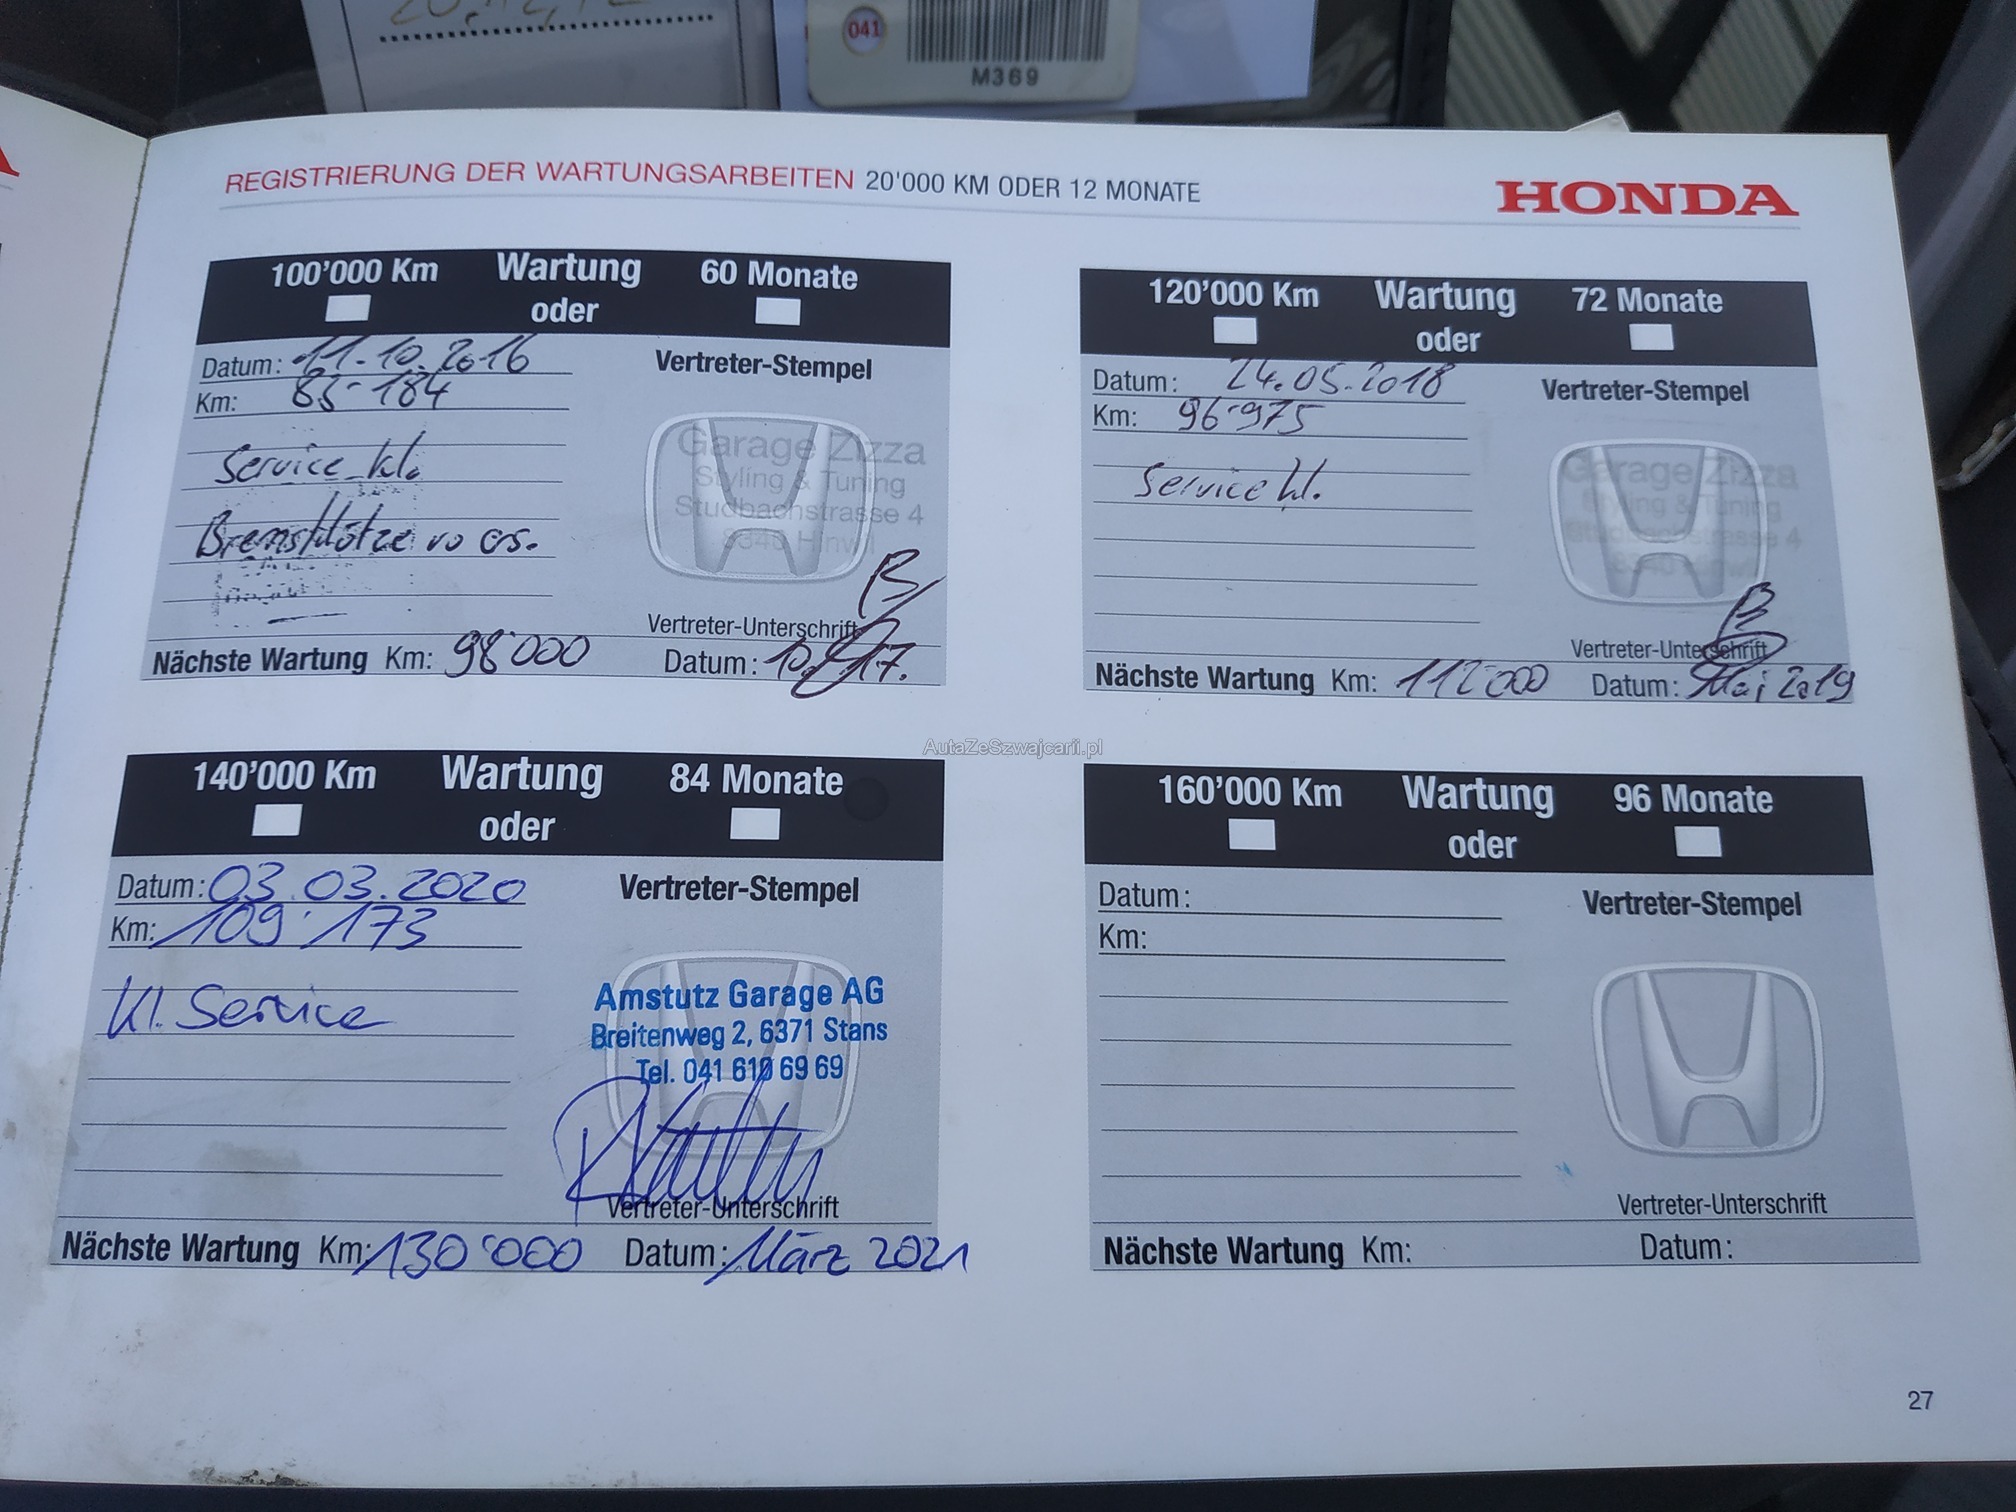 041
M369
REGISTRIERUNG DER WARTUNGSARBEITEN 20'000 KM ODER 12 MONATE
HONDA
100'000 Km Wartung 60 Monate
oder
Datum: 11.10.2016
Km: 83'184
Service kl.
Bremsklötze vo ers.
Vertreter-Stempel
Garage Zizza
Styling & Tuning
Studbachstrasse 4
8340 Hinwil
Vertreter-Unterschrift
Nächste Wartung Km: 98'000 Datum: 10.17.
120'000 Km Wartung 72 Monate
oder
Datum: 24.05.2018
Km: 96'975
Service kl.
Vertreter-Stempel
Garage Zizza
Styling & Tuning
Studbachstrasse 4
8340 Hinwil
Vertreter-Unterschrift
Nächste Wartung Km: 112'000 Datum: Mai 2019
AutaZeSzwajcarii.pl
140'000 Km Wartung 84 Monate
oder
Datum: 03.03.2020
Km: 109'173
Kl. Service
Vertreter-Stempel
Amstutz Garage AG
Breitenweg 2, 6371 Stans
Tel. 041 610 69 69
Vertreter-Unterschrift
Nächste Wartung Km: 130'000 Datum: März 2021
160'000 Km Wartung 96 Monate
oder
Datum:
Km:
Vertreter-Stempel
Vertreter-Unterschrift
Nächste Wartung Km: Datum:
27